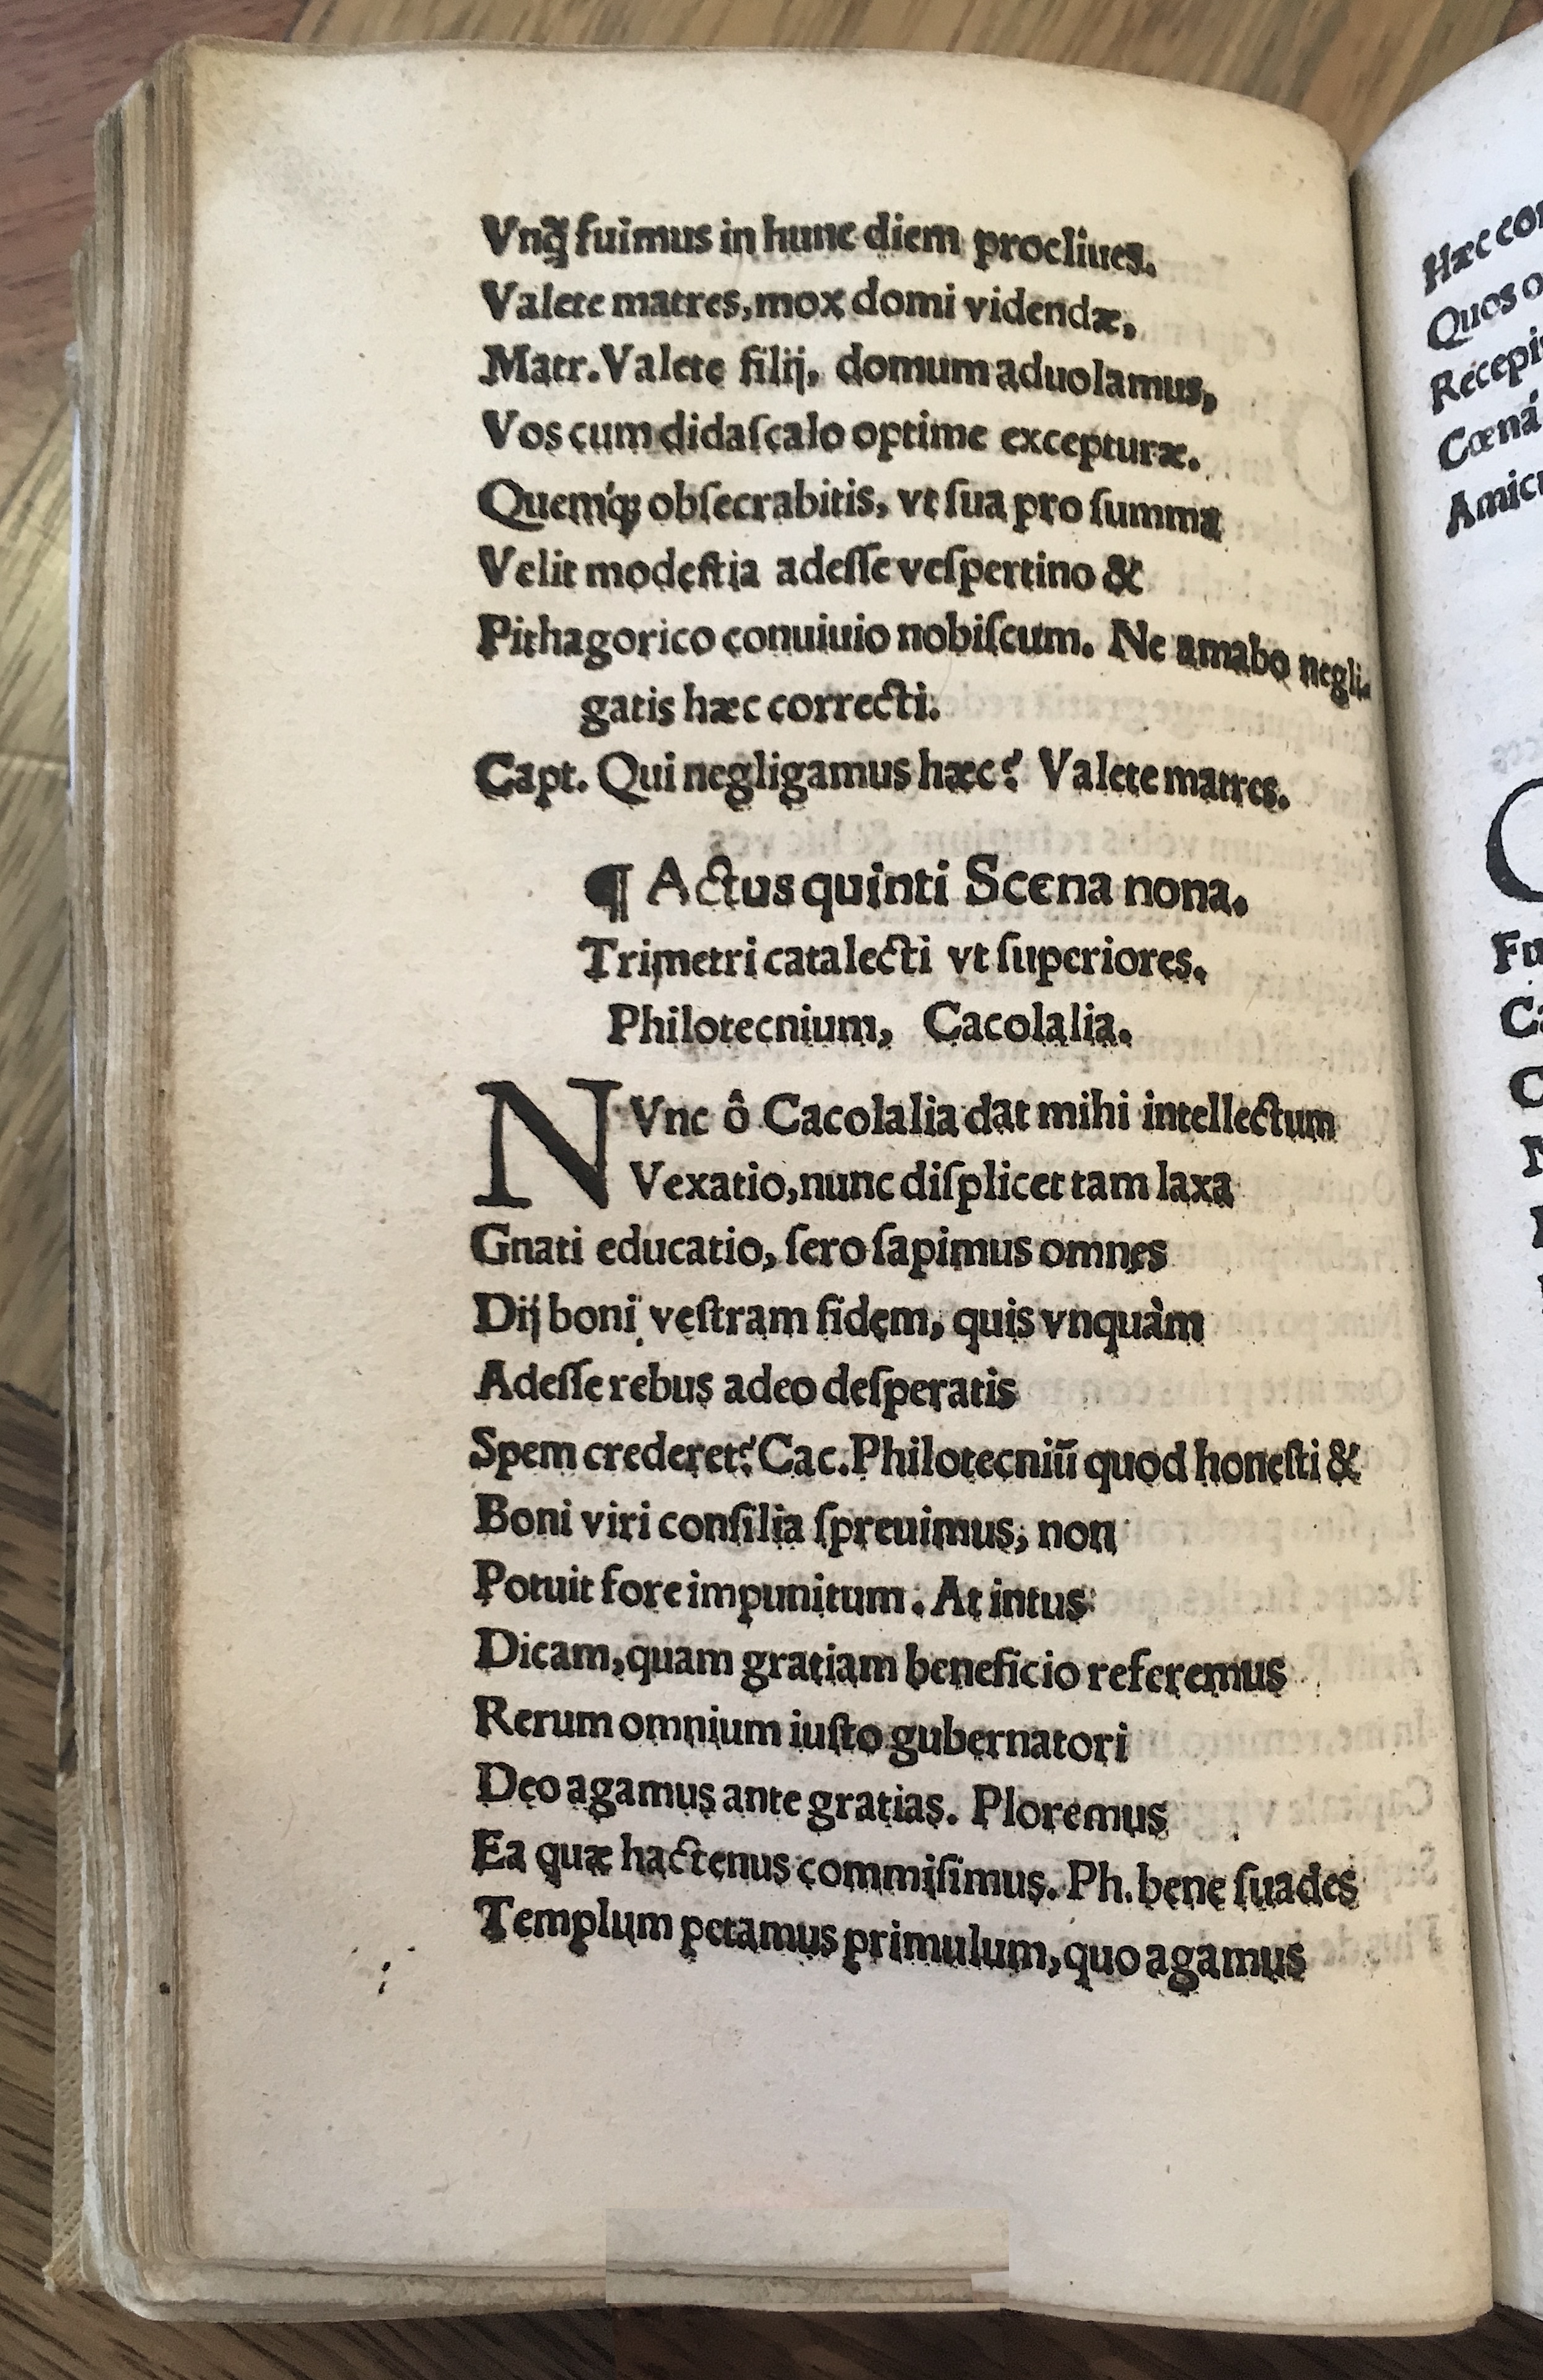 Vnq̃ fuimus in hunc diem procliues.
Valete matres, mox domi videndæ.
Matr. Valete filij, domum aduolamus,
Vos cum didaſcalo optime excepturæ.
Quemq́ꝫ obſecrabitis, vt ſua pro ſumma
Velit modeſtia adeſſe veſpertino &
Pithagorico conuiuio nobiſcum. Ne amabo negli-
gatis hæc correcti.
Capt. Qui negligamus hæc? Valete matres.
¶ Actus quinti Scena nona.
Trimetri catalecti vt ſuperiores.
Philotecnium, Cacolalia.
NVnc ô Cacolalia dat mihi intellectum
Vexatio, nunc diſplicet tam laxa
Gnati educatio, ſero ſapimus omnes
Dij boni veſtram fidem, quis vnquàm
Adeſſe rebus adeo deſperatis
Spem crederet? Cac. Philotecniū quod honeſti &
Boni viri conſilia ſpreuimus, non
Potuit fore impunitum. At intus
Dicam, quam gratiam beneficio referemus
Rerum omnium iuſto gubernatori
Deo agamus ante gratias. Ploremus
Ea quæ hactenus commiſimus. Ph. bene ſuades
Templum petamus primulum, quo agamus
Hæc
Quos
Cœná